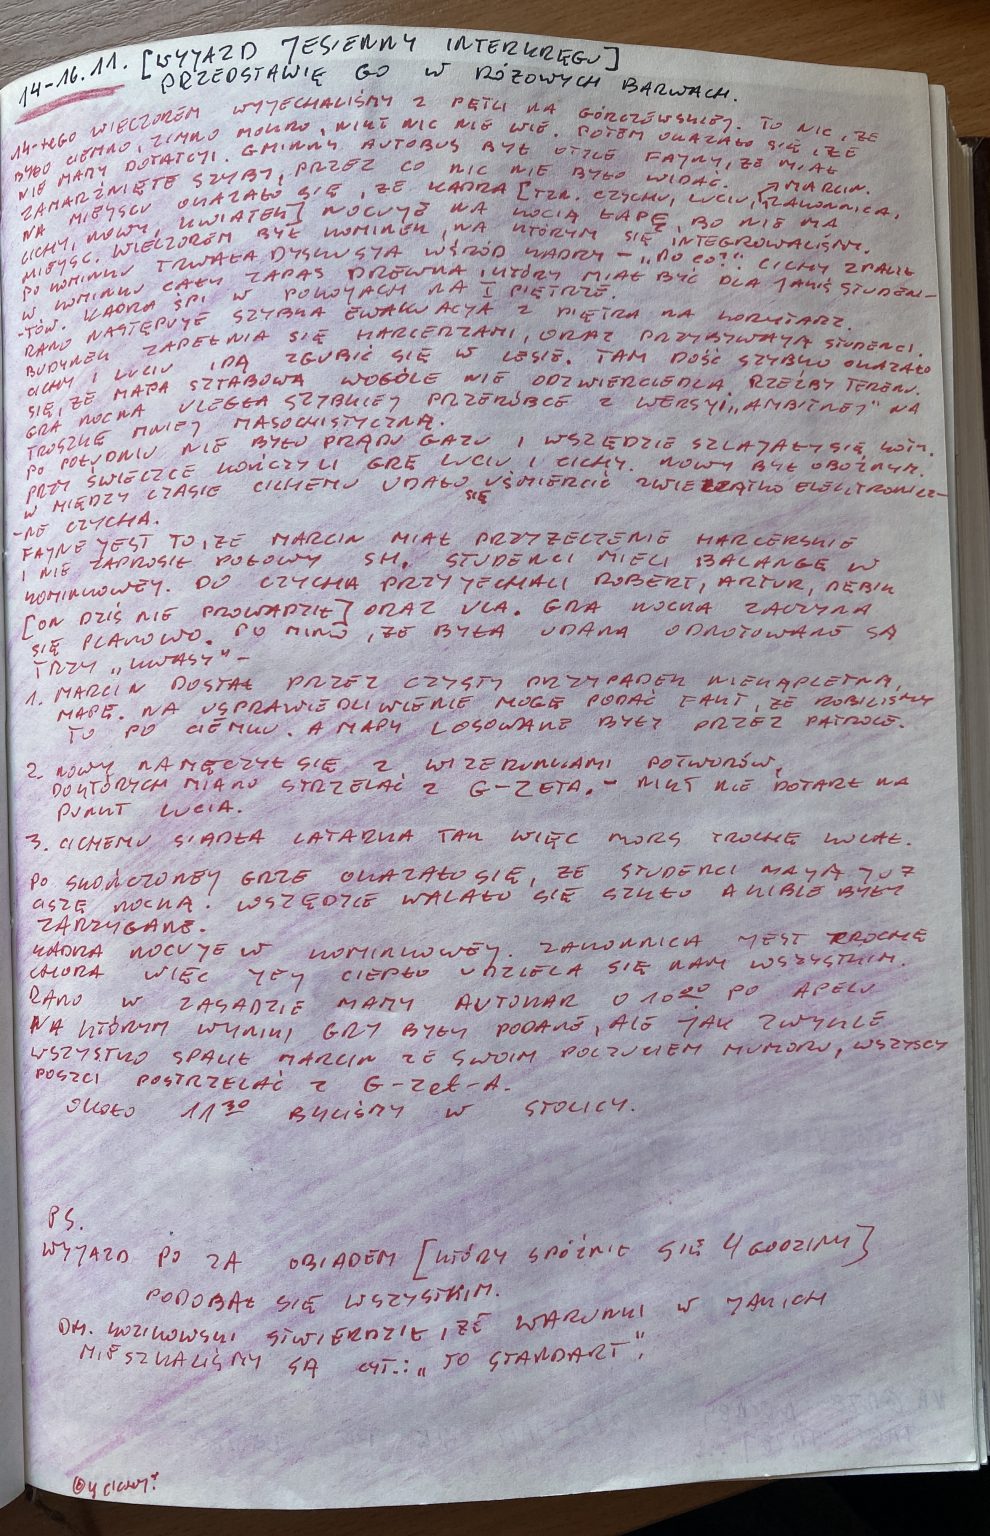 14-16.11. [WYJAZD JESIENNY INTERKRĘGU]
PRZEDSTAWIĘ GO W RÓŻOWYCH BARWACH.
14-TEGO WIECZOREM WYJECHALIŚMY Z PĘTLI NA GÓRCZEWSKIEJ. TO NIC, ŻE
BYŁO CIEMNO, ZIMNO MOKRO, NIKT NIC NIE WIE. POTEM OKAZAŁO SIĘ, ŻE
NIE MAMY DOTACYI. GMINNY AUTOBUS BYŁ OTYLE FAJNY, ŻE MIAŁ
ZAMARZNIĘTE SZYBY, PRZEZ CO NIC NIE BYŁO WIDAĆ.
NA MIEJSCU OKAZAŁO SIĘ, ŻE KADRA [TZN. CZYCHU, LUCIU, MARCIN, ZAKONNICA,
CICHY, NOWY, KWIATEK] NOCUJE NA KOCIĄ ŁAPĘ, BO NIE MA
MIEJSC. WIECZOREM BYŁ KOMINEK, NA KTÓRYM SIĘ INTEGROWALIŚMY.
PO KOMINKU TRWAŁA DYSKUSYA WŚRÓD KADRY – „PO CO?". CICHY SPALIŁ
W KOMINKU CAŁY ZAPAS DREWNA, KTÓRY MIAŁ BYĆ DLA JAKIŚ STUDEN-
-TÓW. KADRA ŚPI W POKOJACH NA I PIĘTRZE.
RANO NASTĘPUJE SZYBKA EWAKUACJA Z PIĘTRA NA KORYTARZ.
BUDYNEK ZAPEŁNIA SIĘ HARCERZAMI, ORAZ PRZYBYWAJĄ STUDENCI.
CICHY I LUCIU IDĄ ZGUBIĆ SIĘ W LESIE. TAM DOŚĆ SZYBKO OKAZAŁO
SIĘ, ŻE MAPA SZTABOWA WOGÓLE NIE ODZWIERCIEDLA RZEŹBY TERENU.
GRA NOCNA ULEGŁA SZYBKIEJ PRZERÓBCE Z WERSYI „AMBITNEJ" NA
TROSZKĘ MNIEJ MASOCHISTYCZNĄ.
PO POŁUDNIU NIE BYŁO PRĄDU GAZU I WSZĘDZIE SZLAJAŁY SIĘ
PRZY ŚWIECZCE KOŃCZYLI GRĘ LUCIU I CICHY. NOWY BYŁ OBOŹNYM.
W MIĘDZY CZASIE CICHEMU UDAŁO SIĘ UŚMIERCIĆ ZWIERZĄTKO ELEKTRONICZ-
-NE CZYCHA.
FAJNE JEST TO, ŻE MARCIN MIAŁ PRZYZECZENIE HARCERSKIE
I NIE ZAPROSIŁ POŁOWY SH. STUDENCI MIELI BALANGĘ W
KOMINKOWEJ. DO CZYCHA PRZYJECHALI ROBERT, ARTUR, DEBIL
[ON DZIŚ NIE PROWADZIŁ] ORAZ ULA. GRA NOCNA ZACZYNA
SIĘ PLANOWO. PO MIMO, ŻE BYŁA UDANA ODNOTOWANE SĄ
TRZY „KWASY" –
1. MARCIN DOSTAŁ PRZEZ CZYSTY PRZYPADEK NIEKĄPLETNĄ
MAPĘ. NA USPRAWIEDLIWIENIE MOGĘ PODAĆ FAKT, ŻE ROBILIŚMY
TO PO CIEMKU. A MAPY LOSOWANE BYŁY PRZEZ PATROLE.
2. NOWY NAMĘCZYŁ SIĘ Z WIZERUNKAMI POTWORÓW,
DO KTÓRYCH MIANO STRZELAĆ Z G-ZETA. – NIKT NIE DOTARŁ NA
PUNKT LUCIA.
3. CICHEMU SIADŁA LATARKA TAK WIĘC MORS TROCHĘ KULAŁ.
PO SKOŃCZONEJ GRZE OKAZAŁO SIĘ, ŻE STUDENCI MAJĄ JUŻ
CISZĘ NOCNĄ. WSZĘDZIE WALAŁO SIĘ SZKŁO A KIBLE BYŁY
ZARZYGANE.
KADRA NOCUJE W KOMINKOWEJ. ZAKONNICA JEST TROCHĘ
CHORA WIĘC JEJ CIEPŁO UDZIELA SIĘ NAM WSZYSTKIM.
RANO W ZASADZIE MAMY AUTOKAR O 10⁰⁰ PO APELU
NA KTÓRYM WYNIKI GRY BYŁY PODANE, ALE JAK ZWYKLE
WSZYSTKO SPALIŁ MARCIN ZE SWOIM POCZUCIEM HUMORU, WSZYSCY
POSZLI POSTRZELAĆ Z G-Zet-A.
OKOŁO 11³⁰ BYLIŚMY W STOLICY.
PS.
WYJAZD PO ZA OBIADEM [KTÓRY SPÓŹNIŁ SIĘ 4 GODZINY]
PODOBAŁ SIĘ WSZYSTKIM.
DH. KOZIKOWSKI STWIERDZIŁ, ŻE WARUNKI W JAKICH
MIESZKALIŚMY SĄ CYT.: „TO STANDART".